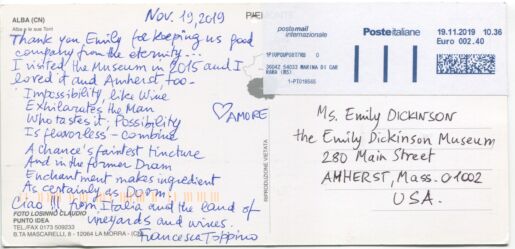 ALBA (CN)
Alba e le sue Torri
Nov. 19, 2019
Thank you Emily for keeping us good
company from the eternity...
I visited the Museum in 2015 and I
loved it and Amherst, too -
Impossibility, like Wine
Exhilarates the Man
Who tastes it; Possibility
Is flavorless - Combine
A Chance's faintest tincture
And in the former Dram
Enchantment makes ingredient
As certainly as Doom.
Ciao!!! from Italia and the land of
vineyards and wines.
Francesca Toppino
♡ AMORE
FOTO LOSINNO CLAUDIO
PUNTO IDEA
TEL./FAX 0173 509233
B.TA MASCARELLI, 8 - 12064 LA MORRA - (CN)
RIPRODUZIONE VIETATA
postemail
internazionale
Posteitaliane
19.11.2019 10.36
Euro 002.40
Ms. Emily DICKINSON
the Emily Dickinson Museum
280 Main Street
AMHERST, Mass. 01002
U.S.A.